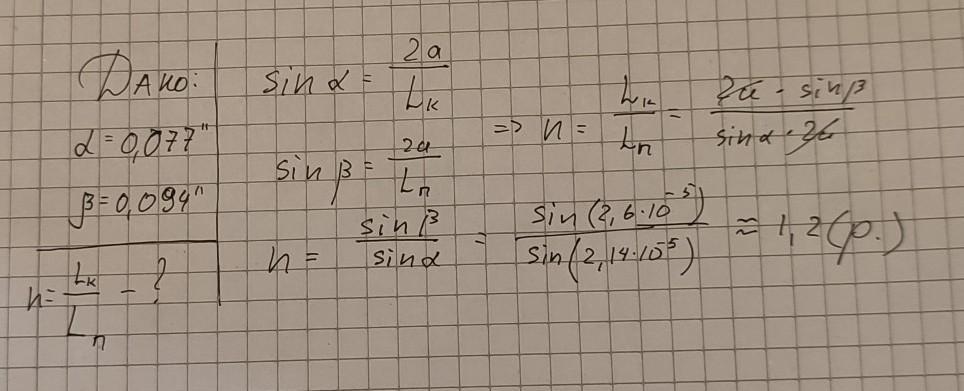 Дано:
α = 0,077"
β = 0,094"
n = Lк / Lп - ?
sin α = 2a / Lк
sin β = 2a / Lп
=> n = Lк / Lп = 2a · sin β / sin α · 2a
n = sin β / sin α = sin(2,6·10⁻⁵) / sin(2,14·10⁻⁵) ≈ 1,2 (р.)